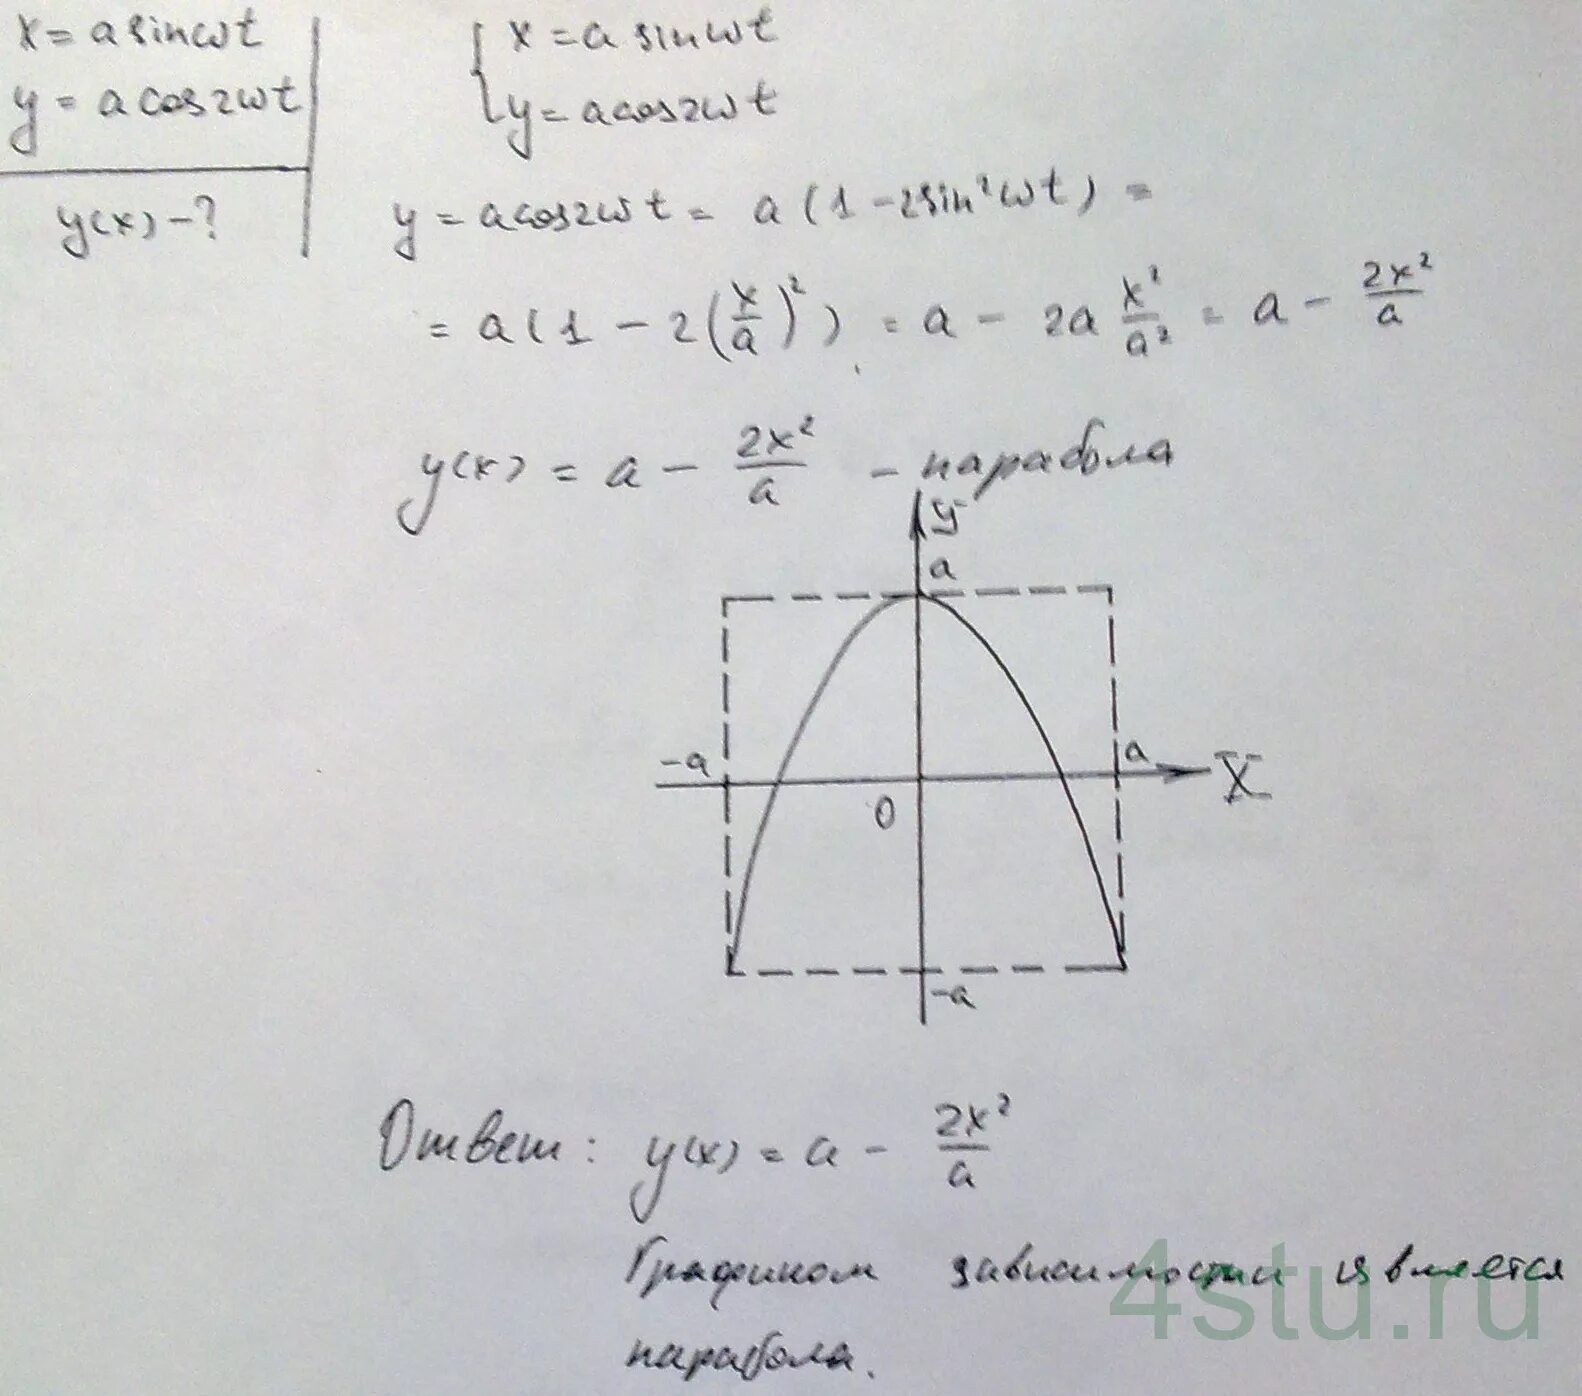 x = a sin ωt
y = a cos 2ωt
y(x) - ?
x = a sin ωt
y = a cos 2ωt
y = a cos 2ωt = a (1 - 2 sin² ωt) =
= a (1 - 2 (x/a)²) = a - 2a x²/a² = a - 2x²/a
y(x) = a - 2x²/a - парабола
y
a
-a
a
X
0
-a
Ответ: y(x) = a - 2x²/a
Графиком зависимости является
парабола.
4stu.ru